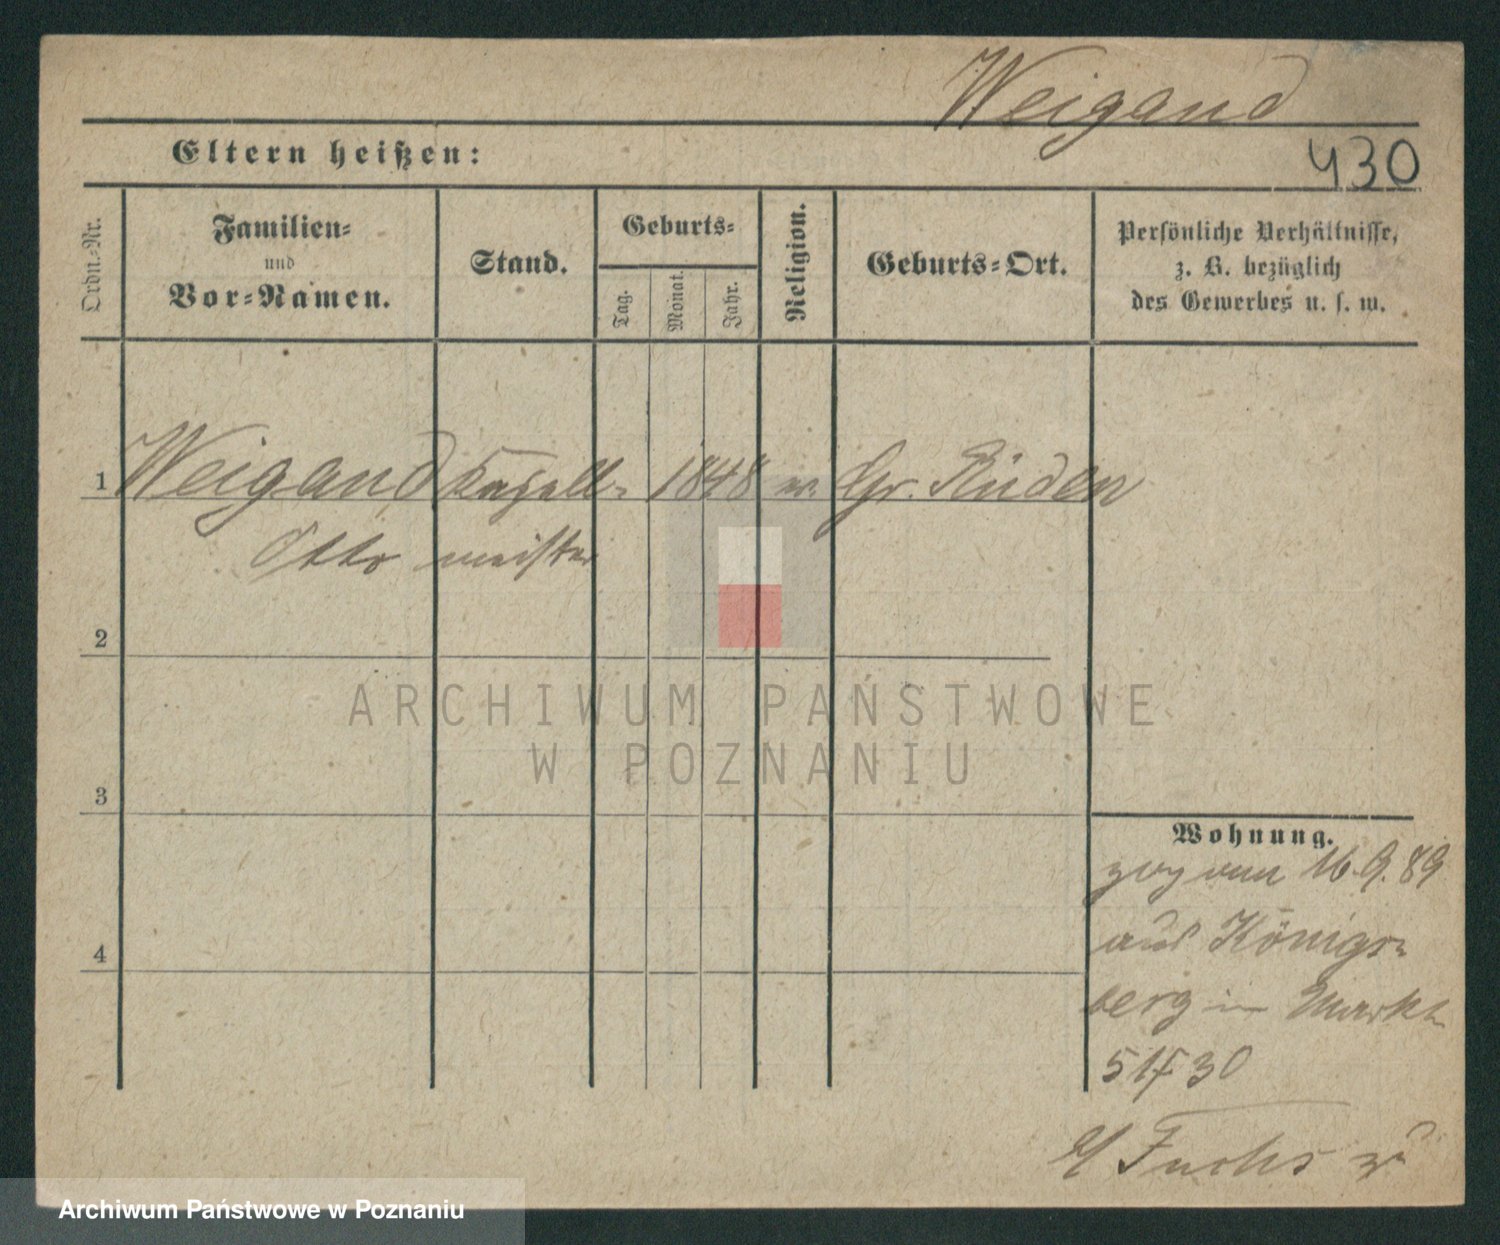 Weigand
Eltern heißen:
430
Ordn.-Nr.
Familien-
und
Vor-Namen.
Stand.
Geburts-
Tag.
Monat.
Jahr.
Religion.
Geburts-Ort.
Persönliche Verhältnisse,
z. B. bezüglich
des Gewerbes u. s. w.
1 Weigand Kapell- 1848 Gr. Rüden
Otto meister
2
3
4
Wohnung.
zog am 16.9.89
aus Königs-
berg in
51/30
Fuchs
ARCHIWUM PAŃSTWOWE
W POZNANIU
Archiwum Państwowe w Poznaniu